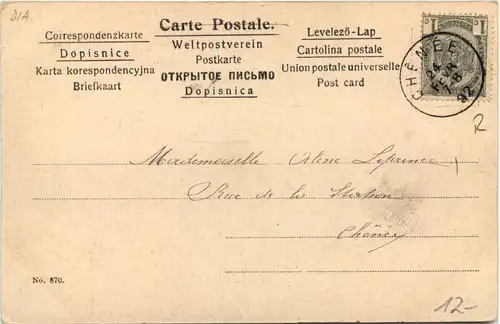 D1A
Carte Postale.
Correspondenzkarte
Dopisnice
Karta korespondencyjna
Briefkaart
Weltpostverein
Postkarte
ОТКРЫТОЕ ПИСЬМО
Dopisnica
Levelező-Lap
Cartolina postale
Union postale universelle
Post card
1 1
CHÊNÉE
24
FEVR
7-8
02
R
Mademoiselle Aline Leprince
Rue de la Station
Chênée
No. 870.
12-